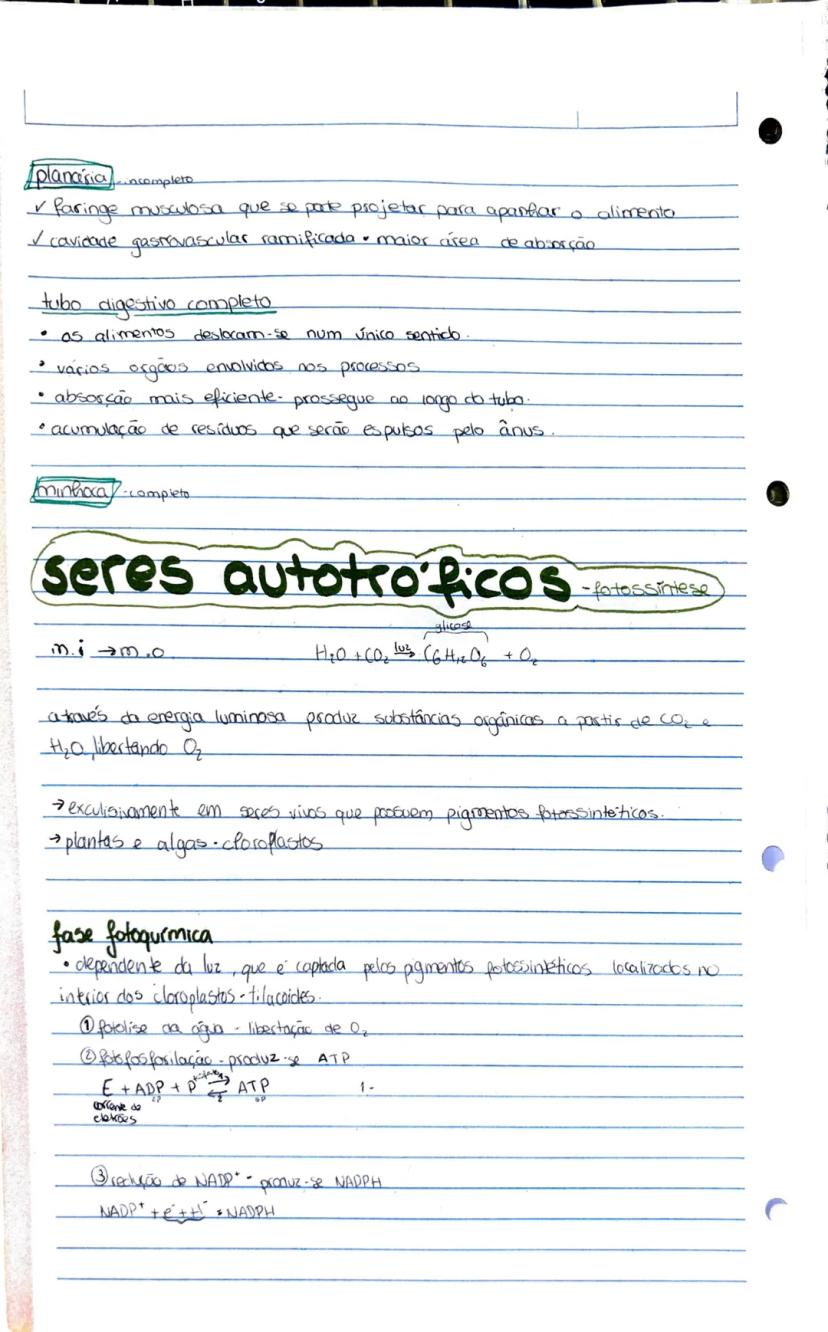 planária - incompleto
✓ faringe musculosa que se pode projetar para apanhar o alimento
✓ cavidade gastrovascular ramificada • maior área de absorção
tubo digestivo completo
• os alimentos deslocam-se num único sentido.
• vários orgãos envolvidos nos processos
• absorção mais eficiente - prossegue ao longo do tubo.
• acumulação de resíduos que serão espulsos pelo ânus.
minhoca - completo
seres autotróficos - fotossíntese
glicose
m.i → m.o H₂O + CO₂ luz→ C6H₁₂O₆ + O₂
através da energia luminosa produz substâncias orgânicas a partir de CO₂ e
H₂O, libertando O₂
→ exculisivamente em seres vivos que possuem pigmentos fotossintéticos.
→ plantas e algas • cloroplastos
fase fotoquímica
• dependente da luz, que é captada pelos pigmentos fotossintéticos localizados no
interior dos cloroplastos - tilacoides.
① fotólise da água - libertação de O₂
② fotofosforilação - produz-se ATP
E + ADP + P ⇄ ATP 1-
2P 3P
corrente de
eletrões
③ redução de NADP⁺ - produz-se NADPH
NADP⁺ + e⁻ + H⁻ = NADPH